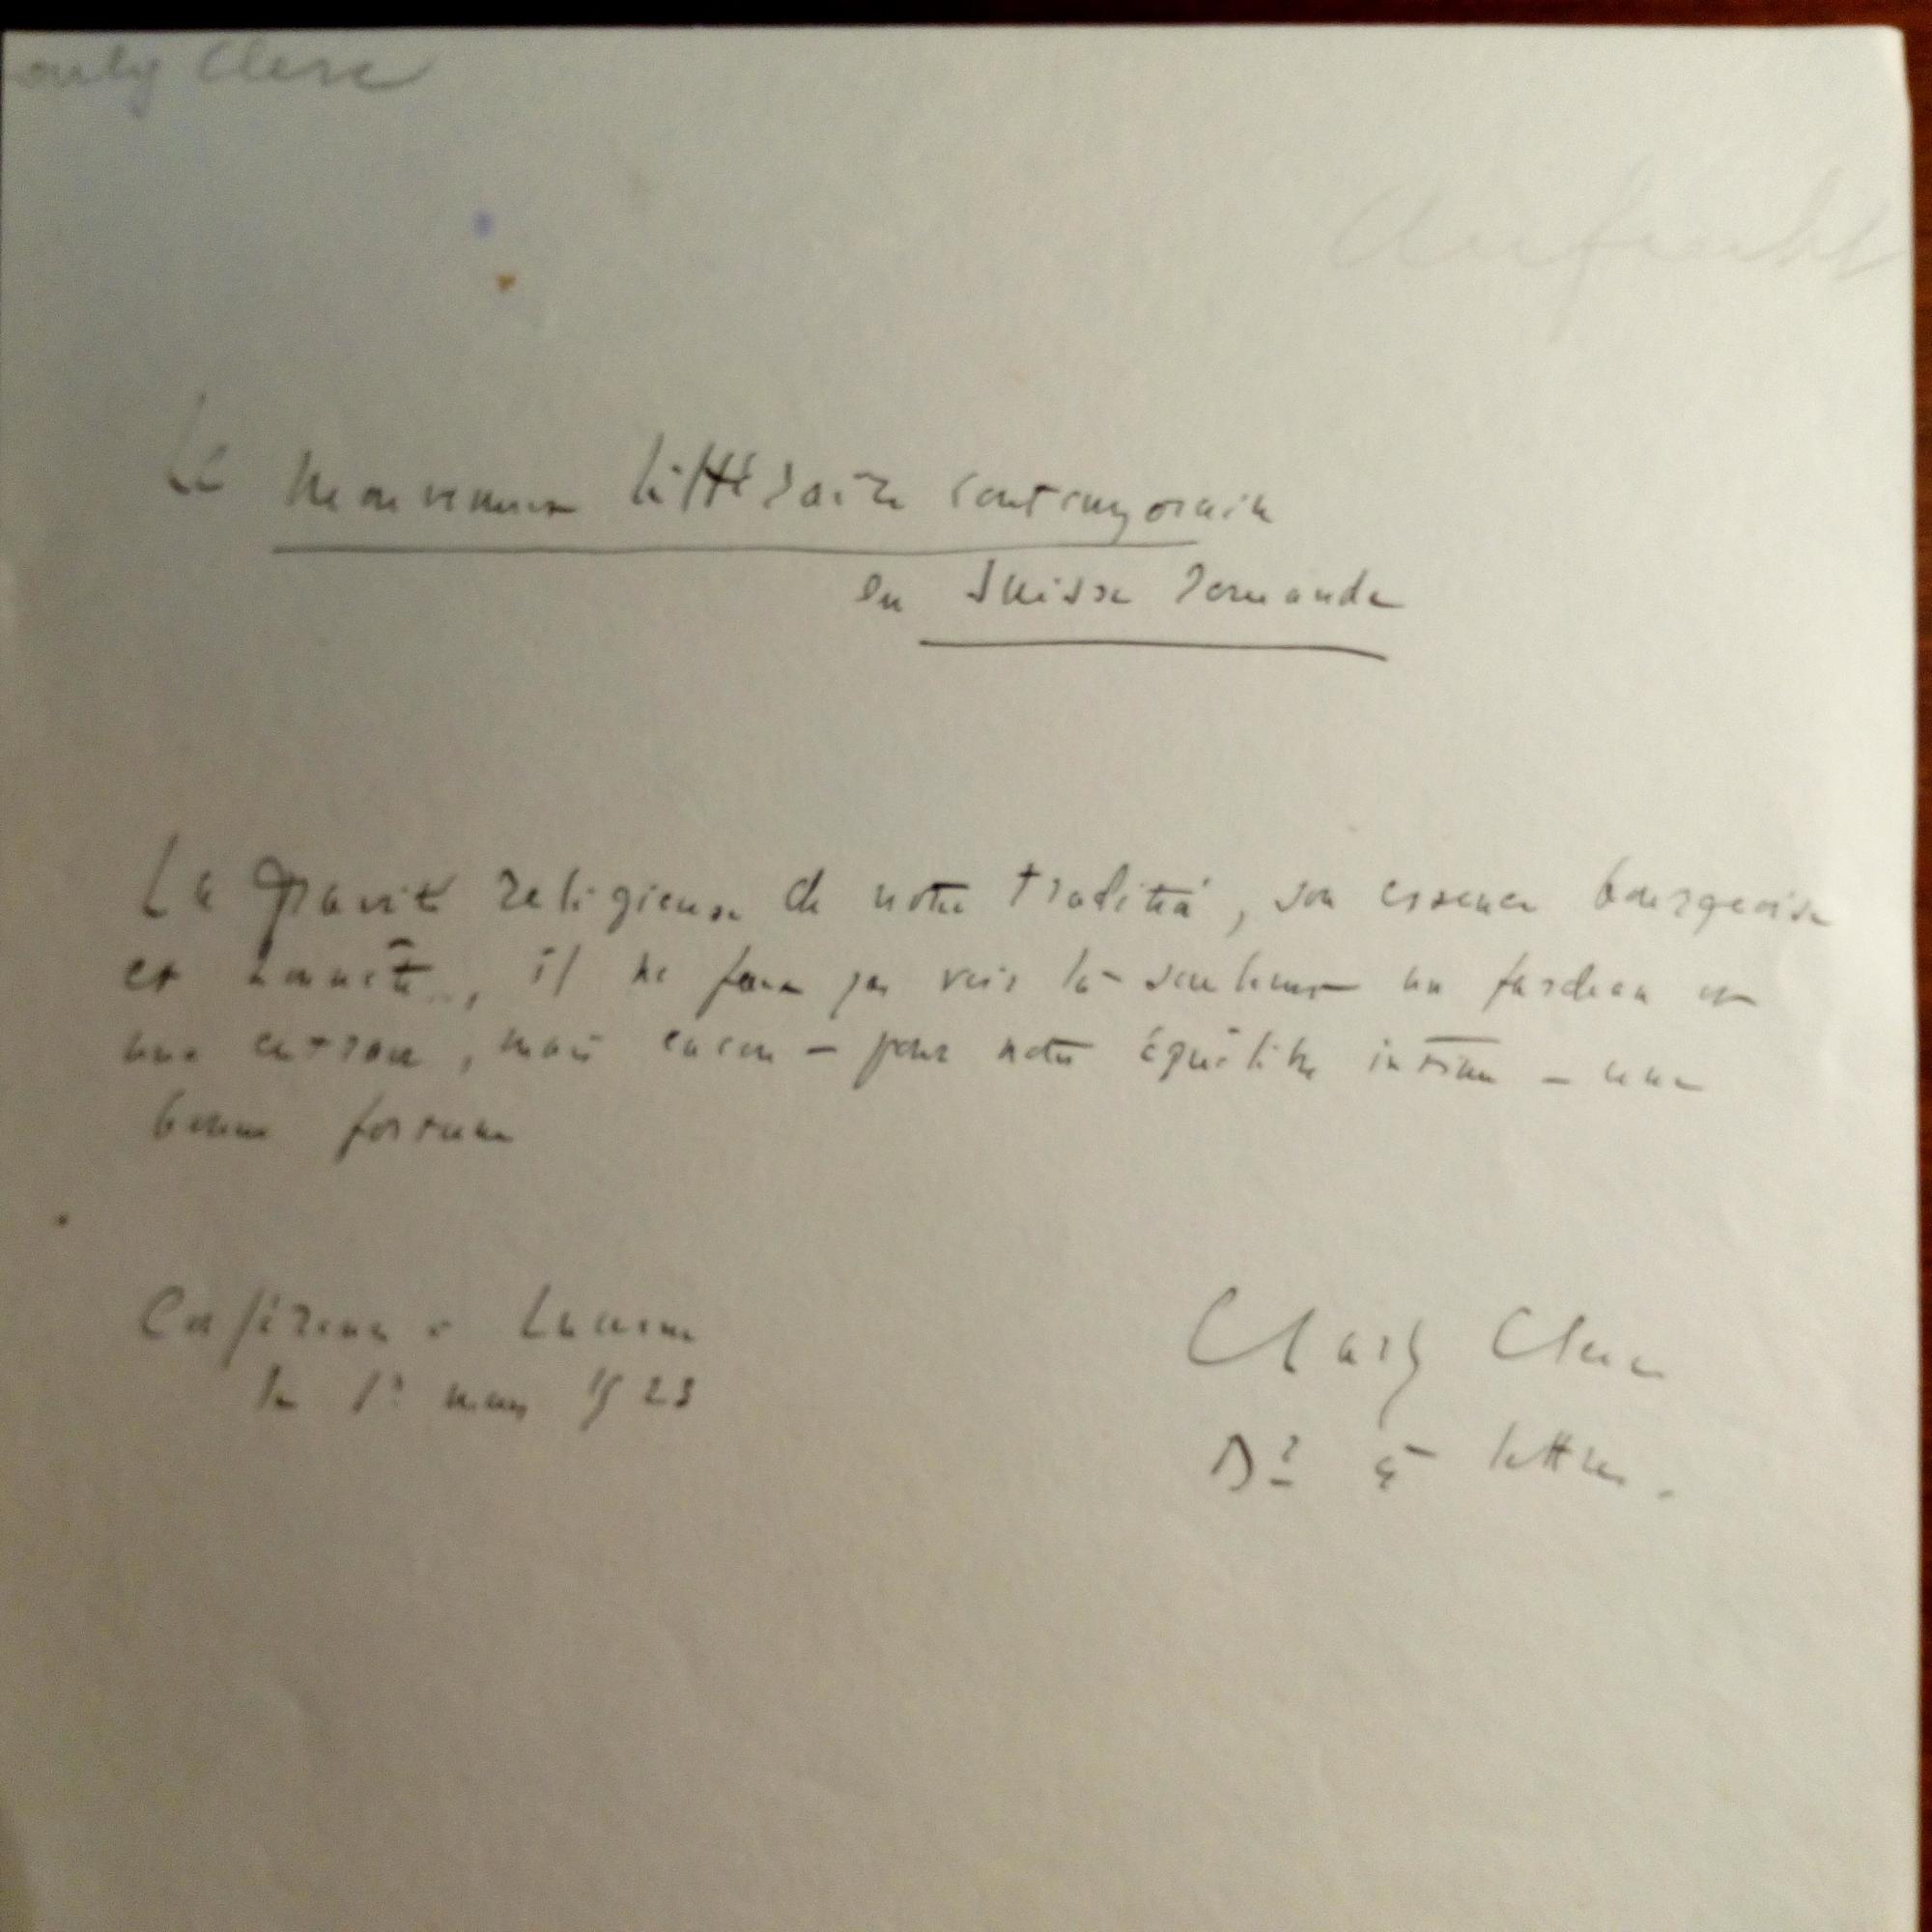 Clerc
Le mouvement littéraire contemporain
en Suisse romande
La gravité religieuse de notre tradition, son essence bourgeoise
et honnête, il ne faut pas voir là seulement un fardeau et
une entrave, mais encore – pour notre équilibre intime – une
bonne fortune
Conférence à Lucerne
le 1er mars 1923
Charly Clerc
Dr ès lettres.